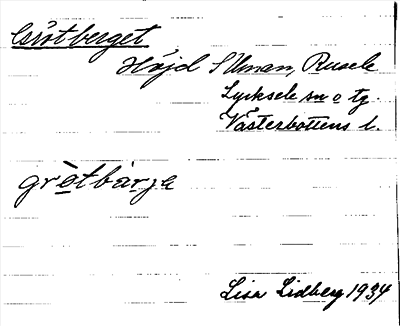 Grötberget
Höjd S Uman, Rusele
Lycksele sn o tg.
Västerbottens l.
gròtbàrja
Lisa Lidberg 1934